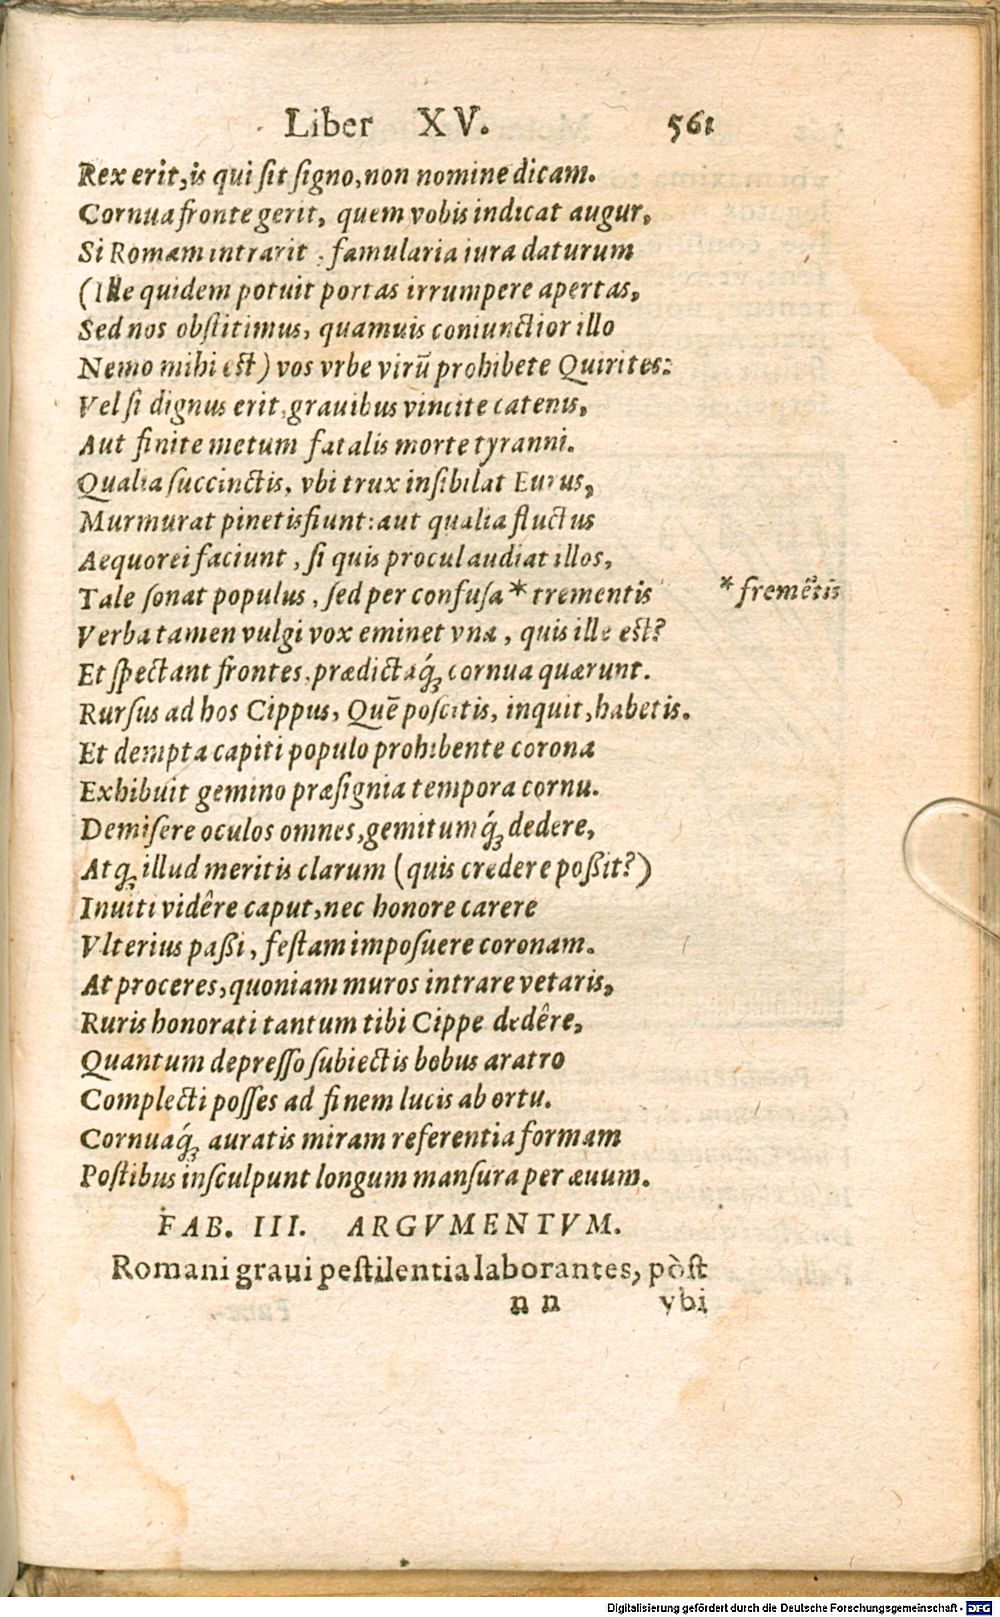 Liber XV. 561
Rex erit, is qui sit signo, non nomine dicam.
Cornua fronte gerit, quem vobis indicat augur,
Si Romam intrarit, famularia iura daturum
(Ille quidem potuit portas irrumpere apertas,
Sed nos obstitimus, quamuis coniunctior illo
Nemo mihi est) vos vrbe virũ prohibete Quirites:
Vel si dignus erit, grauibus vincite catenis,
Aut finite metum fatalis morte tyranni.
Qualia succinctis, vbi trux insibilat Eurus,
Murmurat pinetis fiunt: aut qualia fluctus
Aequorei faciunt, si quis procul audiat illos,
Tale sonat populus, sed per confusa * trementis * fremẽtis
Verba tamen vulgi vox eminet vna, quis ille est?
Et spectant frontes, prædictaq́; cornua quærunt.
Rursus ad hos Cippus, Quẽ poscitis, inquit, habetis.
Et dempta capiti populo prohibente corona
Exhibuit gemino præsignia tempora cornu.
Demisere oculos omnes, gemitumq́; dedere,
Atq; illud meritis clarum (quis credere poßit?)
Inuiti vidêre caput, nec honore carere
Vlterius paßi, festam imposuere coronam.
At proceres, quoniam muros intrare vetaris,
Ruris honorati tantum tibi Cippe dedêre,
Quantum depresso subiectis bobus aratro
Complecti posses ad finem lucis ab ortu.
Cornuaq́; auratis miram referentia formam
Postibus insculpunt longum mansura per æuum.
FAB. III. ARGVMENTVM.
Romani graui pestilentia laborantes, pòst
n n vbi
Digitalisierung gefördert durch die Deutsche Forschungsgemeinschaft - DFG